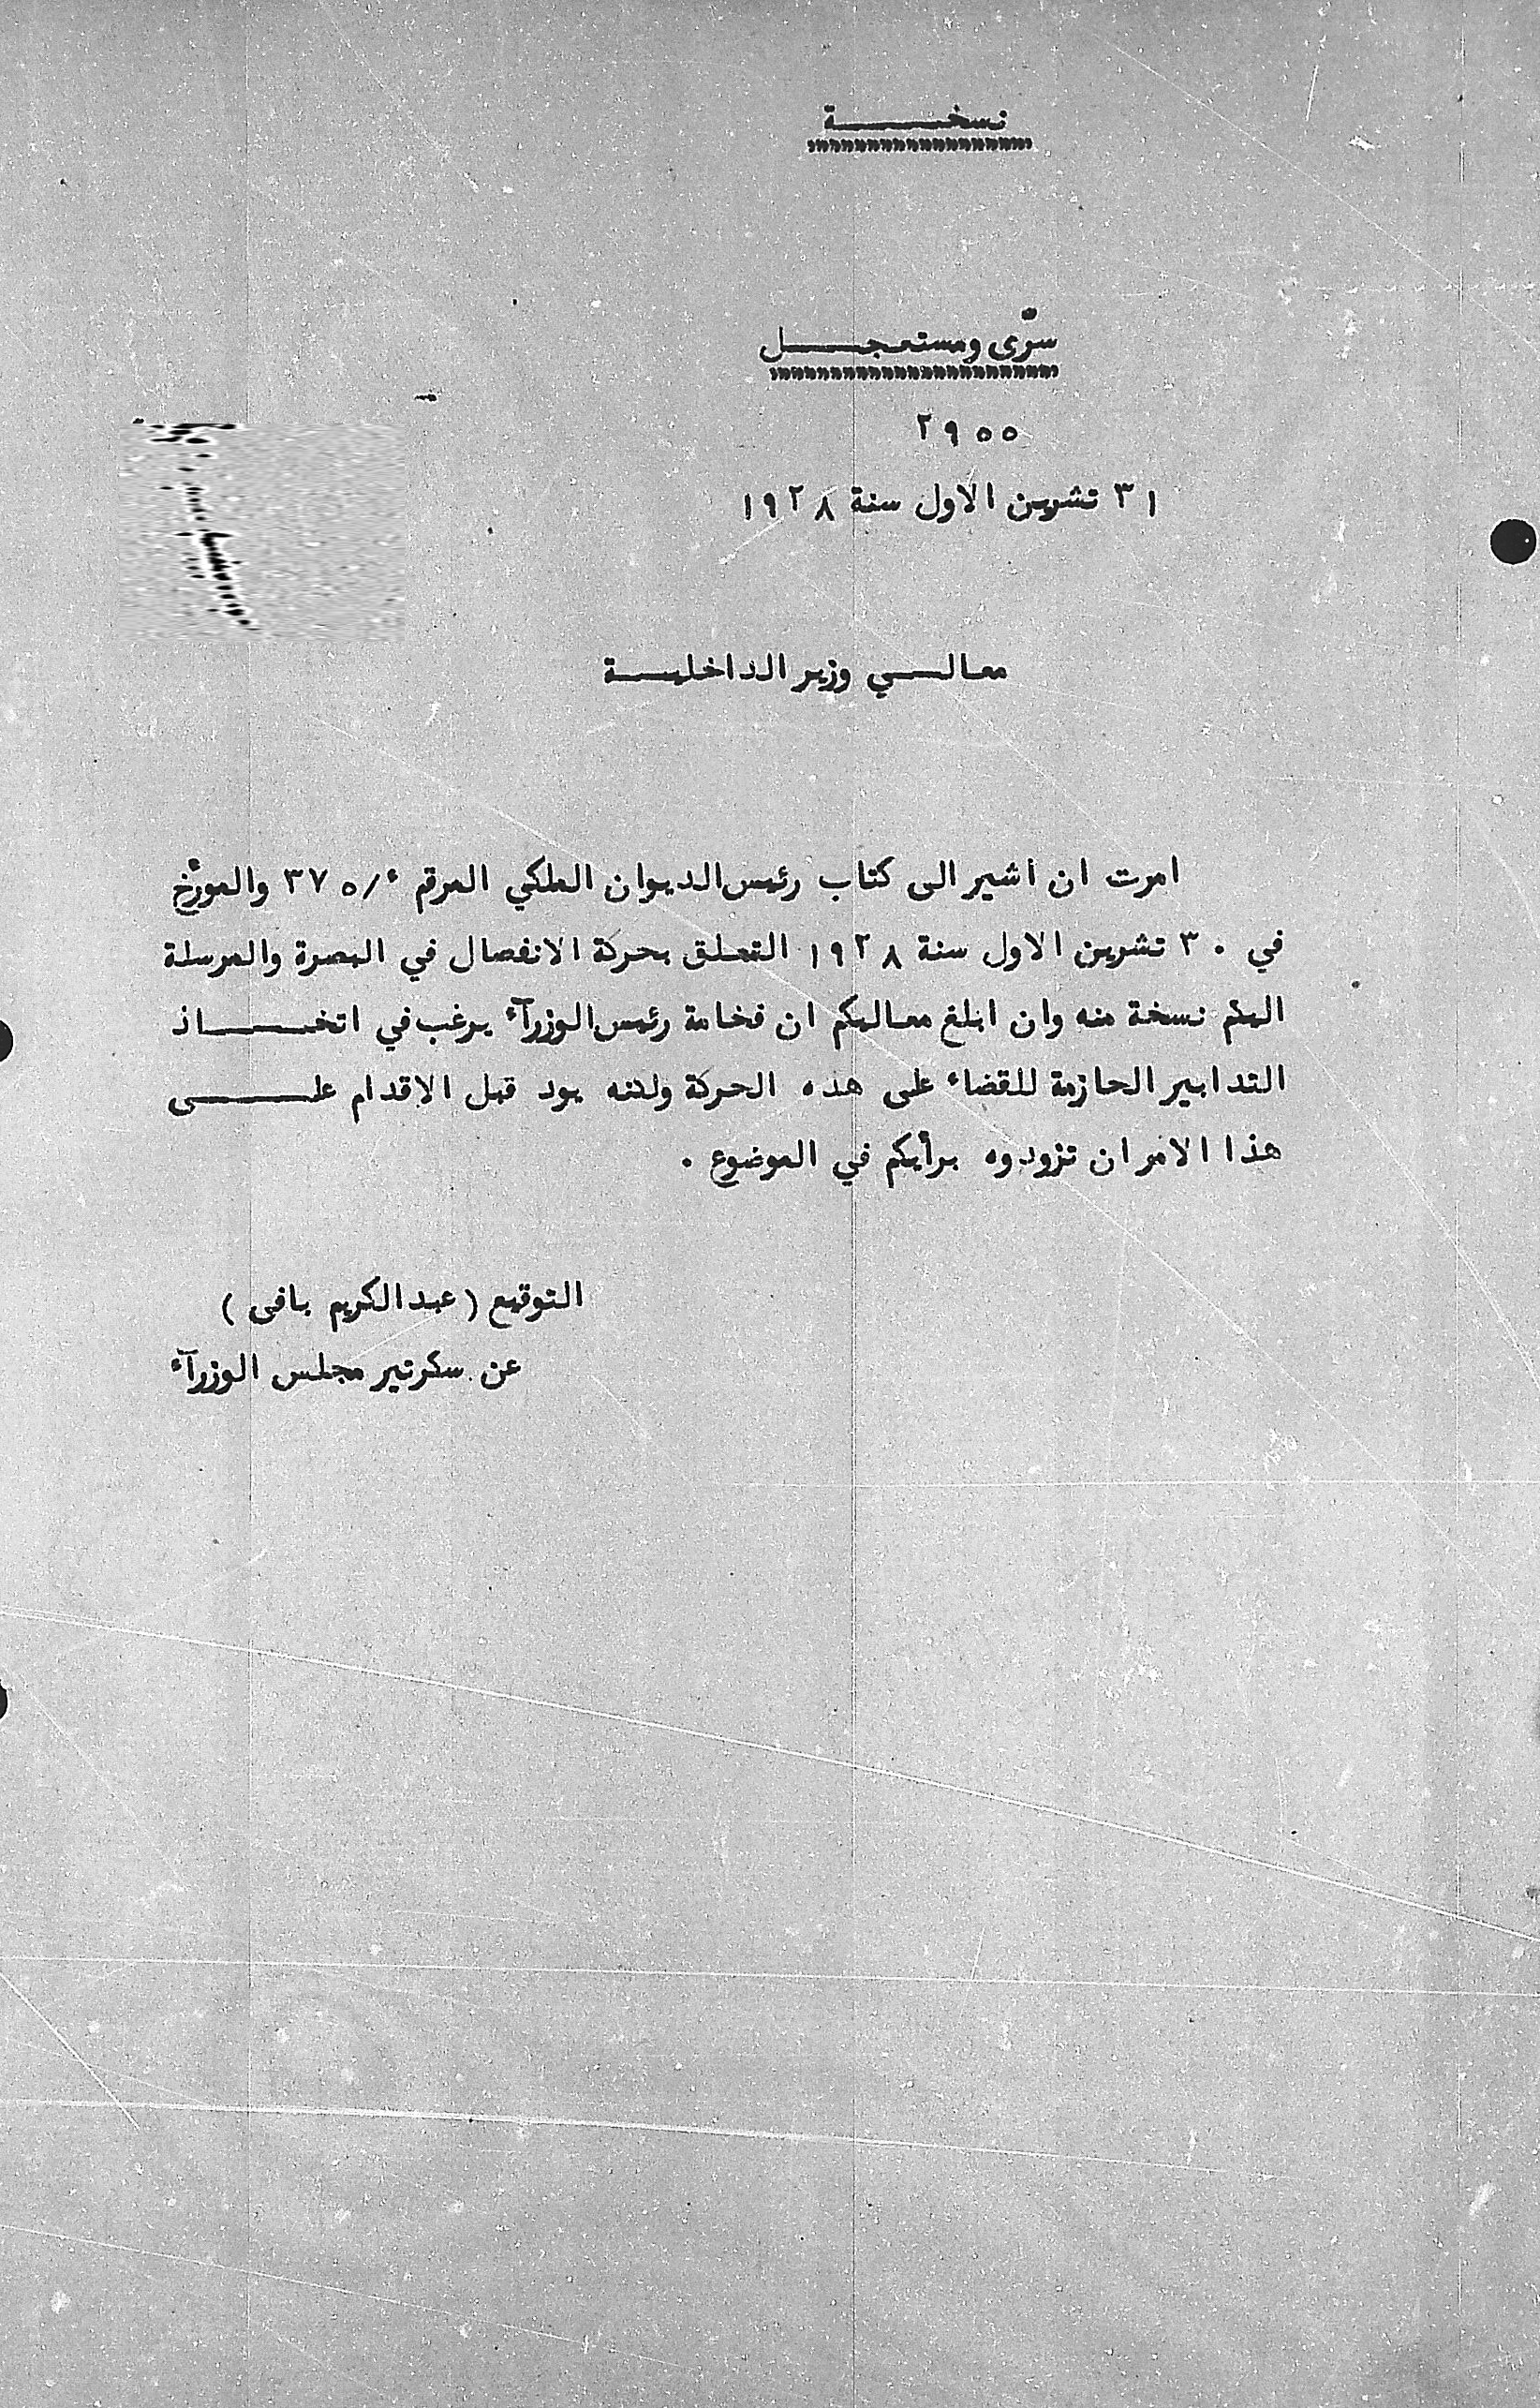 نسخة
سرّى ومستعجل
٢٩٥٥
٣١ تشرين الاول سنة ١٩٢٨
معالي وزير الداخلية
امرت ان اشير الى كتاب رئيس الديوان الملكي المرقم ء/٣٧٥ والمورّخ
في ٣٠ تشرين الاول سنة ١٩٢٨ التعلق بحركة الانفصال في البصرة والمرسلة
اليكم نسخة منه وان ابلغ معاليكم ان فخامة رئيس الوزرآء يرغب في اتخاذ
التدابير الحازمة للقضاء على هذه الحركة ولكنه يود قبل الاقدام على
هذا الامر ان تزودوه برأيكم في الموضوع .
التوقيع ( عبد الكريم بافى )
عن سكرتير مجلس الوزرآء